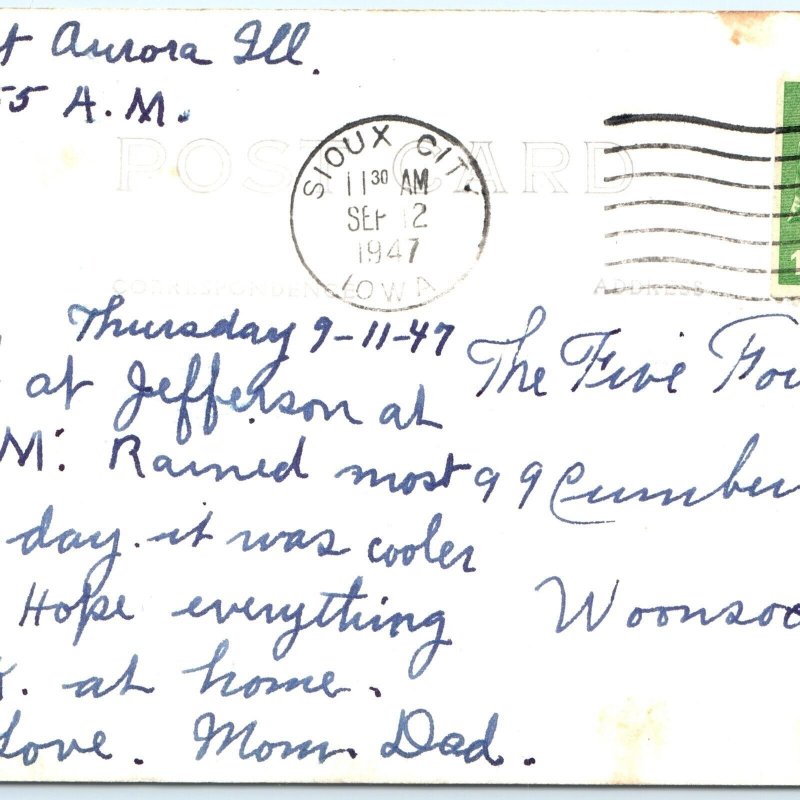 Aurora Ill.
55 A.M.
POST CARD
SIOUX CITY
11 30 AM
SEP 12
1947
IOWA
CORRESPONDENCE
ADDRESS
Thursday 9-11-47
at Jefferson at
M. Rained most
day. it was cooler
Hope everything
K. at home.
Love. Mom. Dad.
The Five Fou
99 Cumber
Woonsoc
1